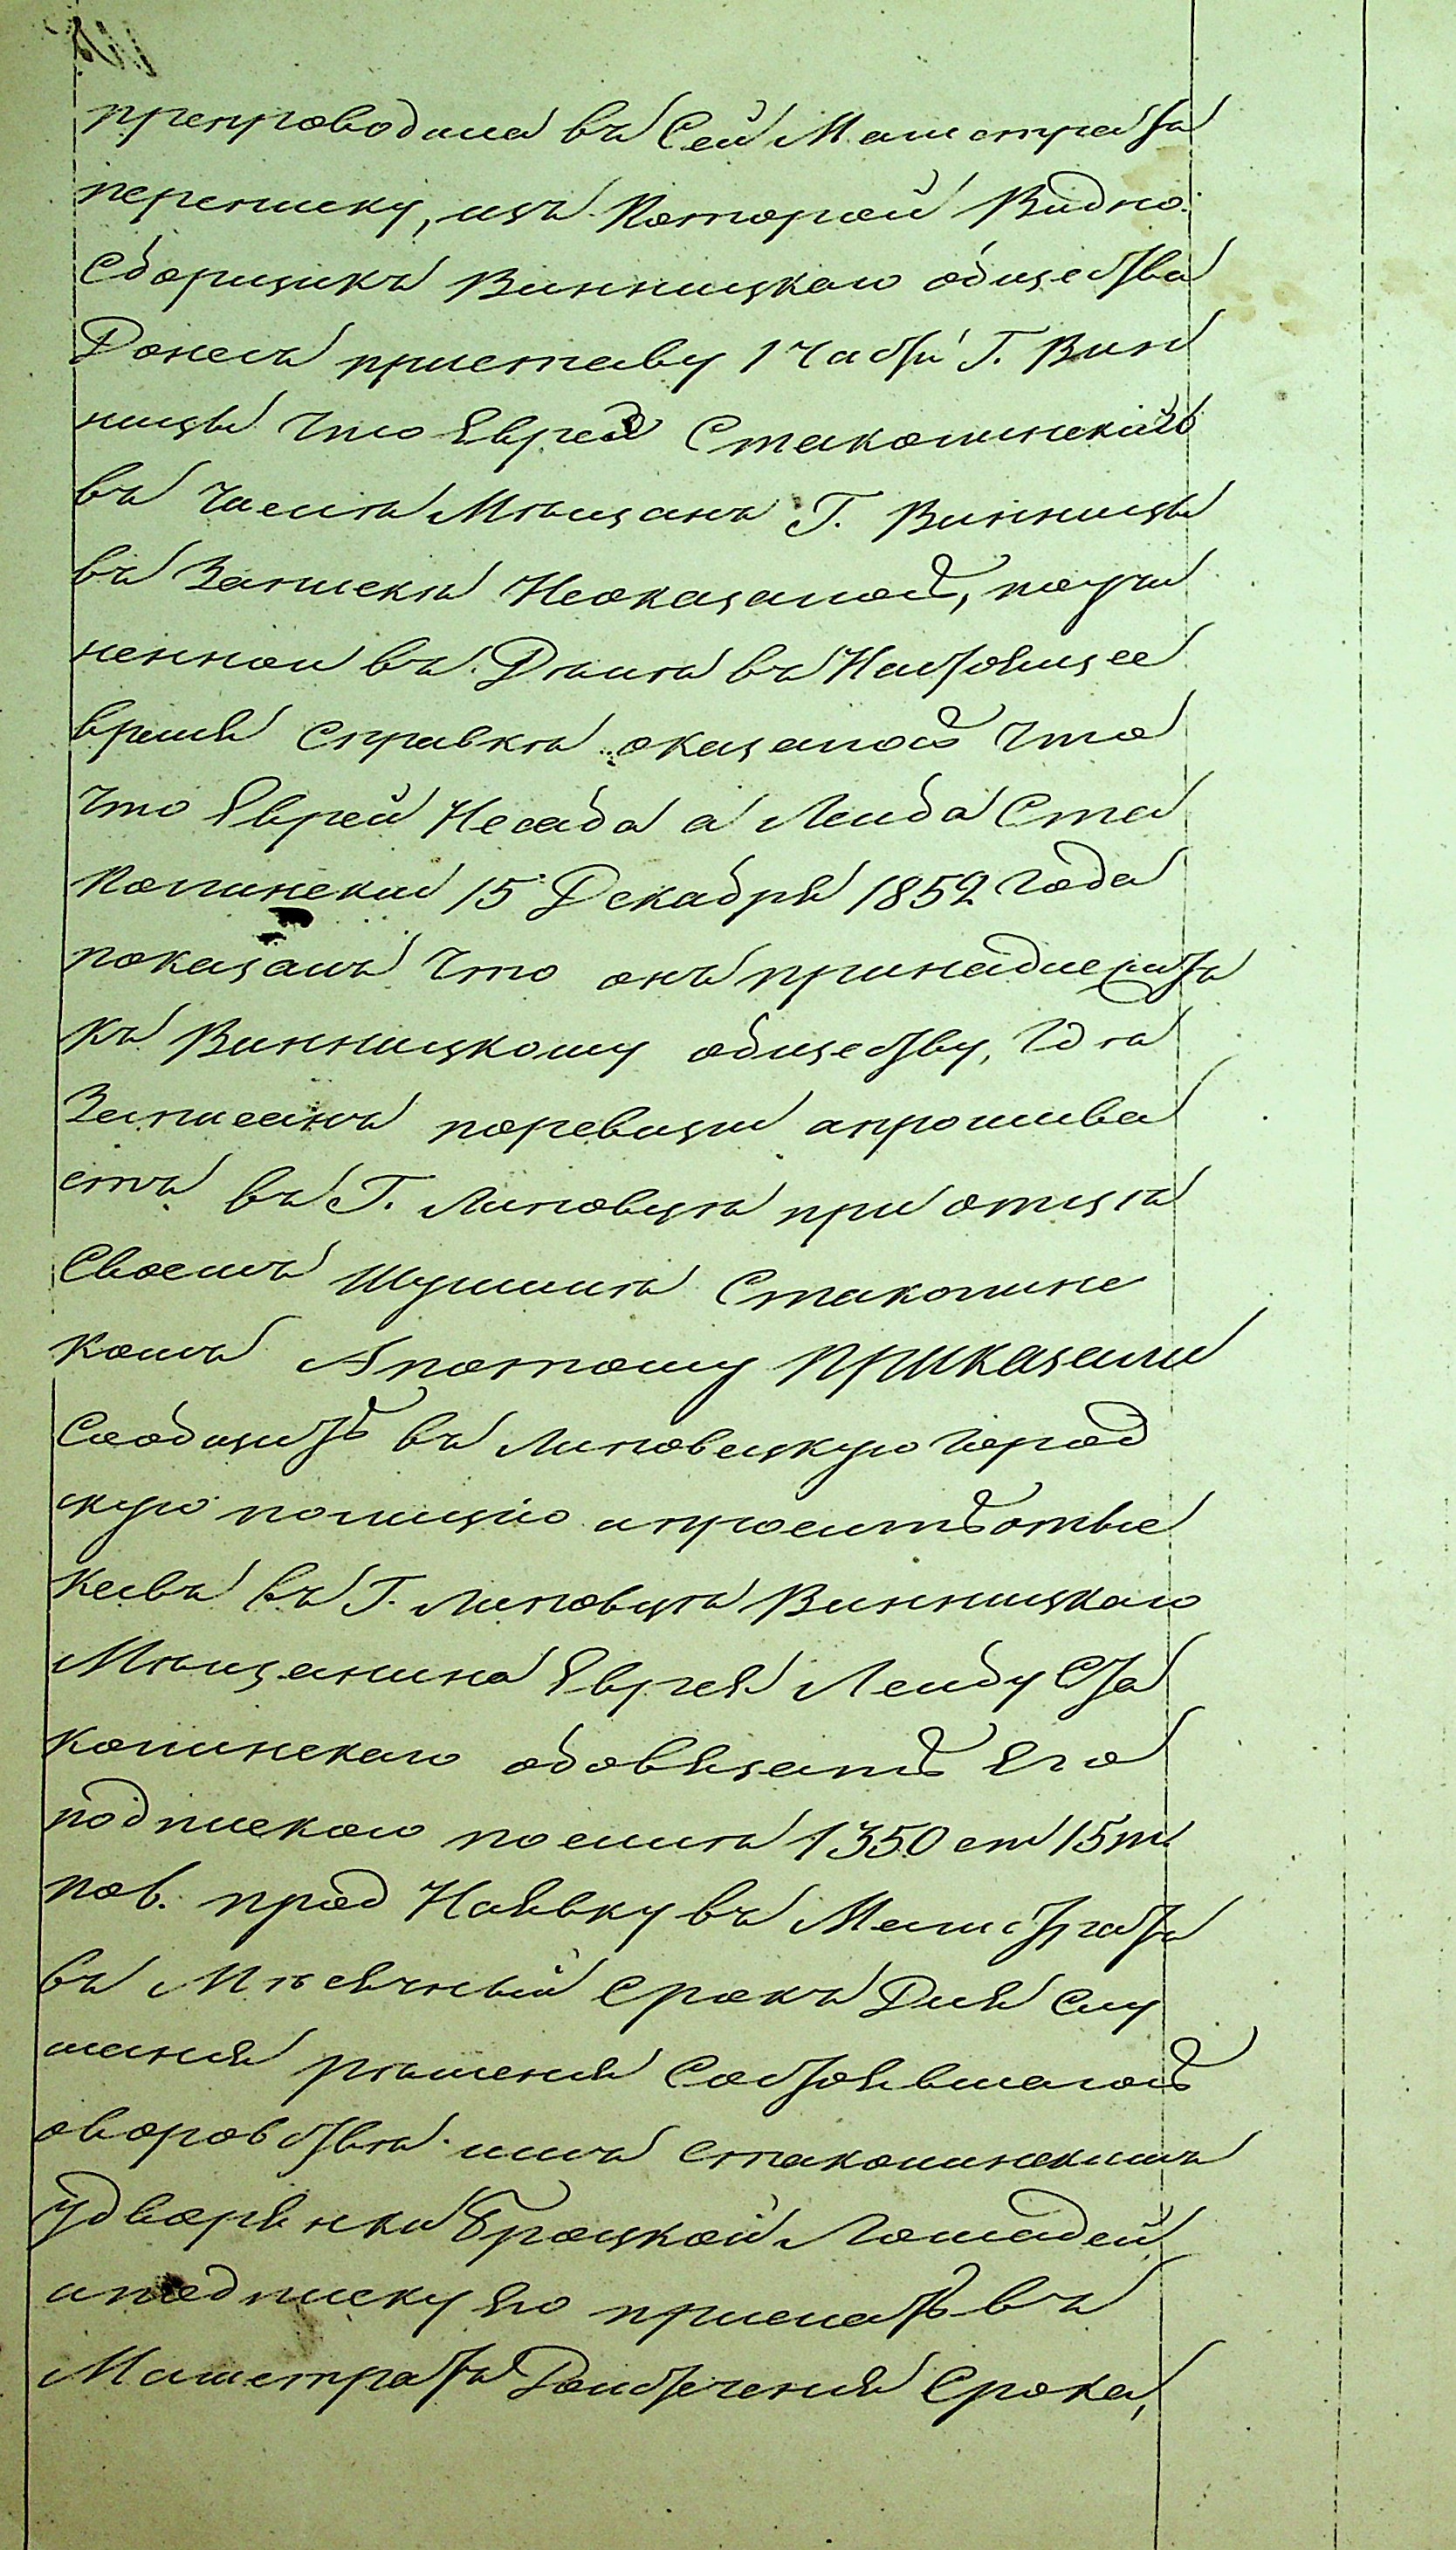 препроводила въ Сей Магистратъ
переписку, изъ Которой Видно:
Сборщикъ Винницкаго общества
Донесъ приставу 1 Части Г. Вин
ницы что Еврей Стаколинскій
въ числѣ Мѣщанъ Г. Винницы
въ Запискѣ Неоказался, поучи
ненной въ Дѣлѣ въ Настоящее
время справкѣ оказалось что
что Еврей Несада а Лейба Ста
Колинскій 15 Декабря 1852 года
показалъ что онъ принадлежитъ
къ Винницкому обществу, гдѣ
Записанъ поревизіи апрожива
етъ въ Г. Липовцѣ при отцѣ
Своемъ Шулимѣ Стаколинс
комъ Апотому приказали
Сообщить въ Липовецкую город
скую полицію ипроситьотыс
кавъ въ Г. Липовцѣ Винницкаго
Мѣщанина Еврея Лейбу Ста
колинскаго обовязать Его
подпискою посилѣ 1350 ст 15 т.
пов. прод Наявку въ Магистратъ
въ Мѣсячный Срокъ Для Слу
шанія рѣшенія Состоявшагось
оворовствѣ имъ стаколинскимъ
Удворянки Броцкой Лошадей
иподписку Его прислать въ
Магистратъ Доистеченія Срока,